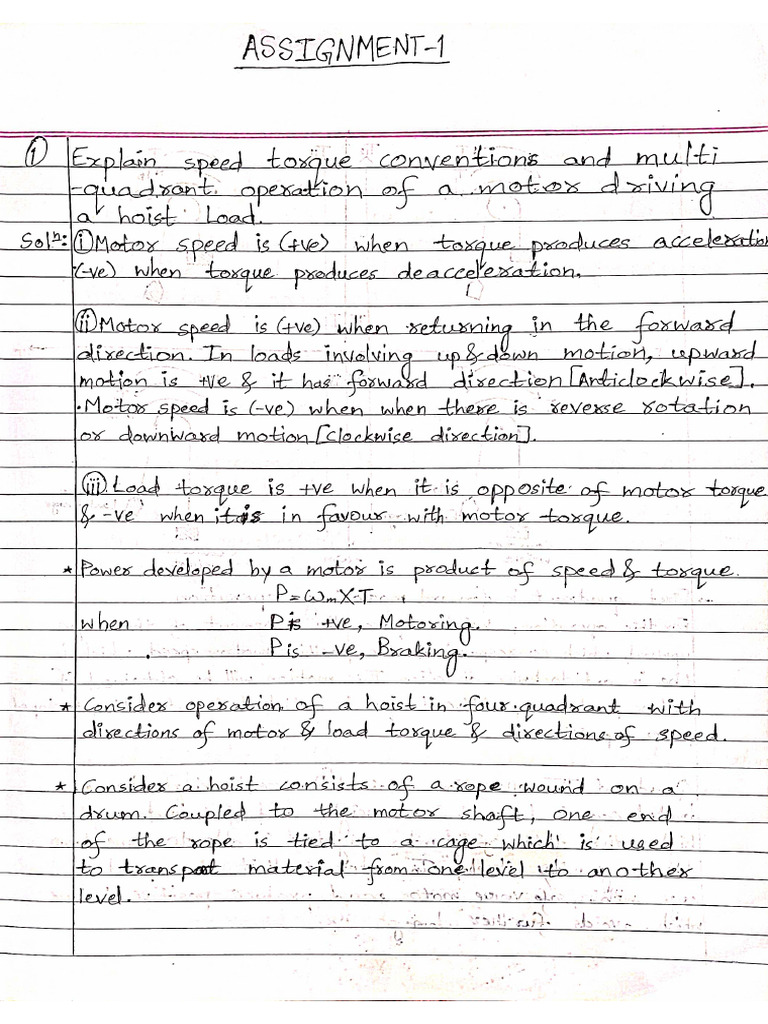 ASSIGNMENT-1
① Explain speed torque conventions and multi
-quadrant operation of a motor driving
a hoist load.
Solⁿ: ⓘ Motor speed is (+ve) when torque produces acceleration
(-ve) when torque produces deacceleration.
ⓘⓘ Motor speed is (+ve) when returning in the forward
direction. In loads involving up & down motion, upward
motion is +ve & it has forward direction [Anticlockwise].
. Motor speed is (-ve) when when there is reverse rotation
or downward motion [clockwise direction].
ⓘⓘⓘ Load torque is +ve when it is opposite of motor torque
& -ve when it is in favour with motor torque.
* Power developed by a motor is product of speed & torque.
P = ωm X T
when P is +ve, Motoring.
P is -ve, Braking.
* Consider operation of a hoist in four quadrant with
directions of motor & load torque & directions of speed.
* Consider a hoist consists of a rope wound on a
drum. Coupled to the motor shaft, one end
of the rope is tied to a cage which is used
to transpot material from one level to another
level.